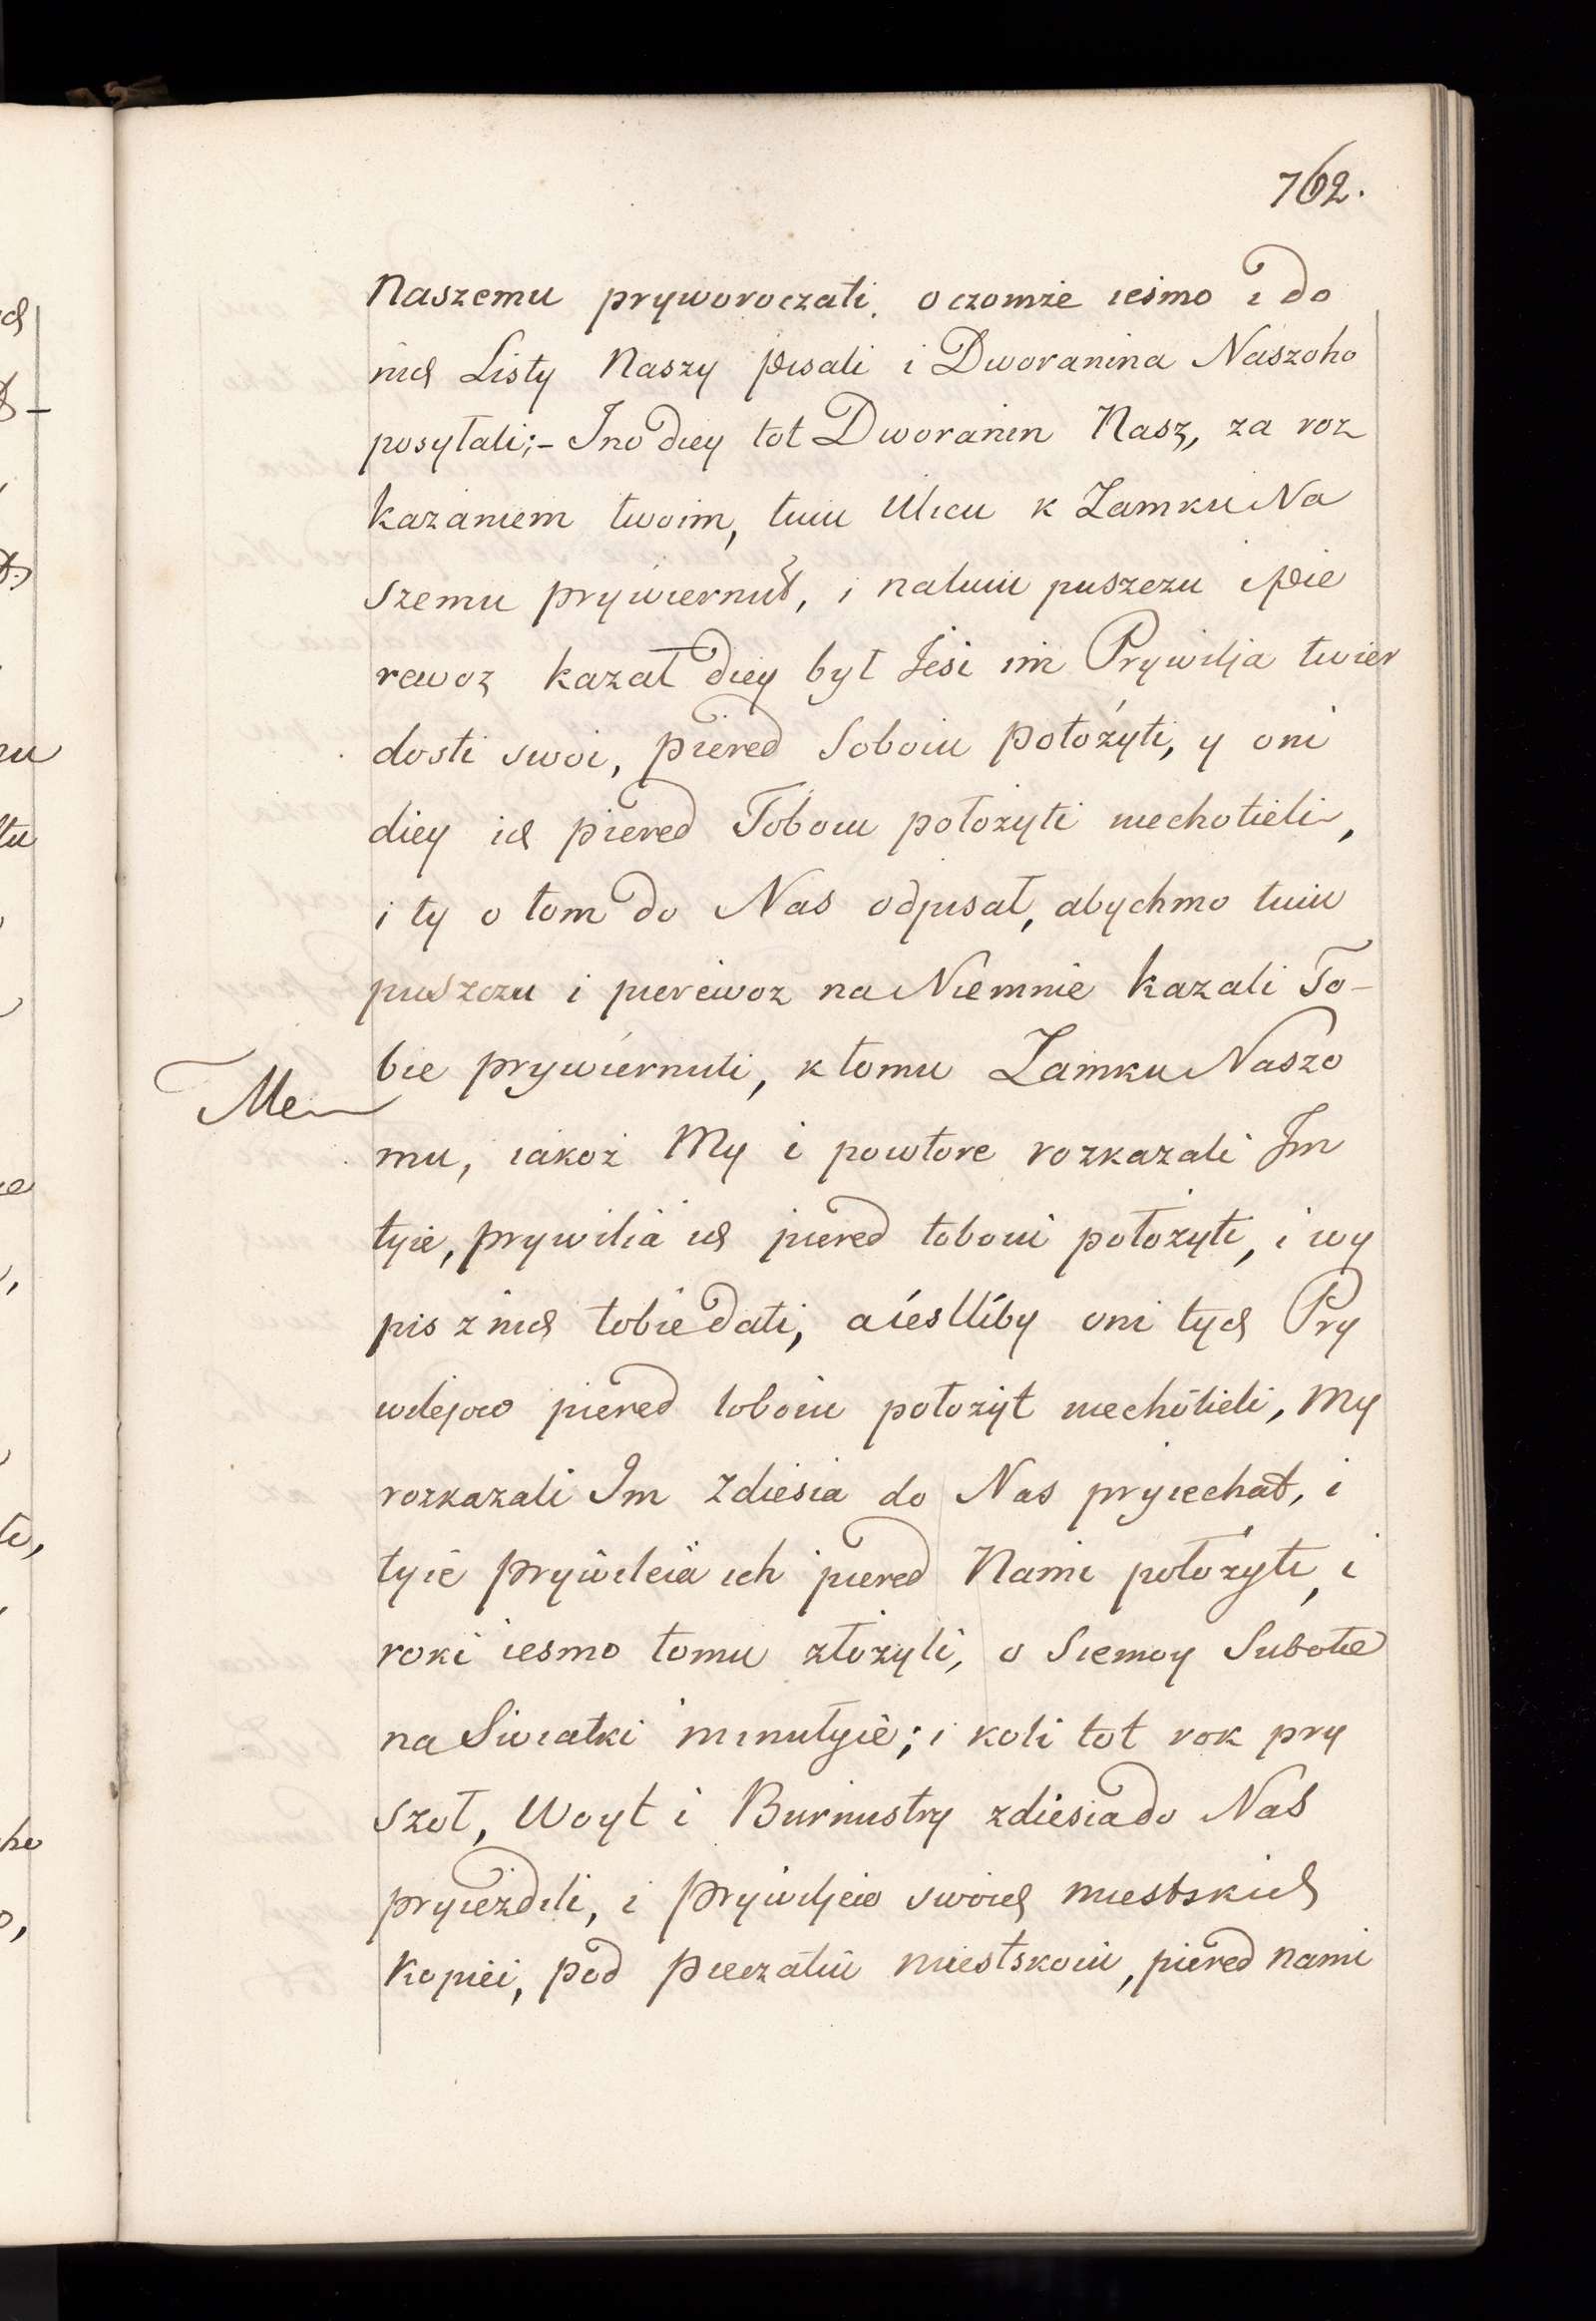 762.
Naszemu pryworoczati, o czomże iesmo i do
nich Listy Naszy pisali i Dworanina Naszoho
posyłali;- Ino diey tot Dworanin Nasz, za roz
kazaniem twoim, tuiu Ulicu k Zamku Na
szemu prywiernuł, i na tuiu puszczu i pie
rewoz kazał diey był Jesi im Prywilja twier
dosti swoi, piered Soboiu położyti, y oni
diey ich piered Toboiu położyti niechotieli,
i ty o tom do Nas odpisał, abychmo tuiu
puszczu i pierewoz na Niemnie kazali To-
bie prywiernuti, k tomu Zamku Naszo
mu, iakoż My i powtore rozkazali Im
tyie, prywilia ich piered toboiu położyti, i wy
pis z nich tobie dati, a iesliby oni tych Pry
wilejow piered toboiu położyt niechotieli, My
rozkazali Im zdiesia do Nas pryiechat, i
tyie prywileia ich piered Nami położyti, i
roki iesmo tomu złożyli, o Siemoy Subotie
na Swiatki minułyie; i koli tot rok pry
szoł, Woyt i Burmistry zdiesia do Nas
pryiezdili, i prywiljeio swoich miestskich
Kopiei, pod pieczatiu miestskoiu, piered nami